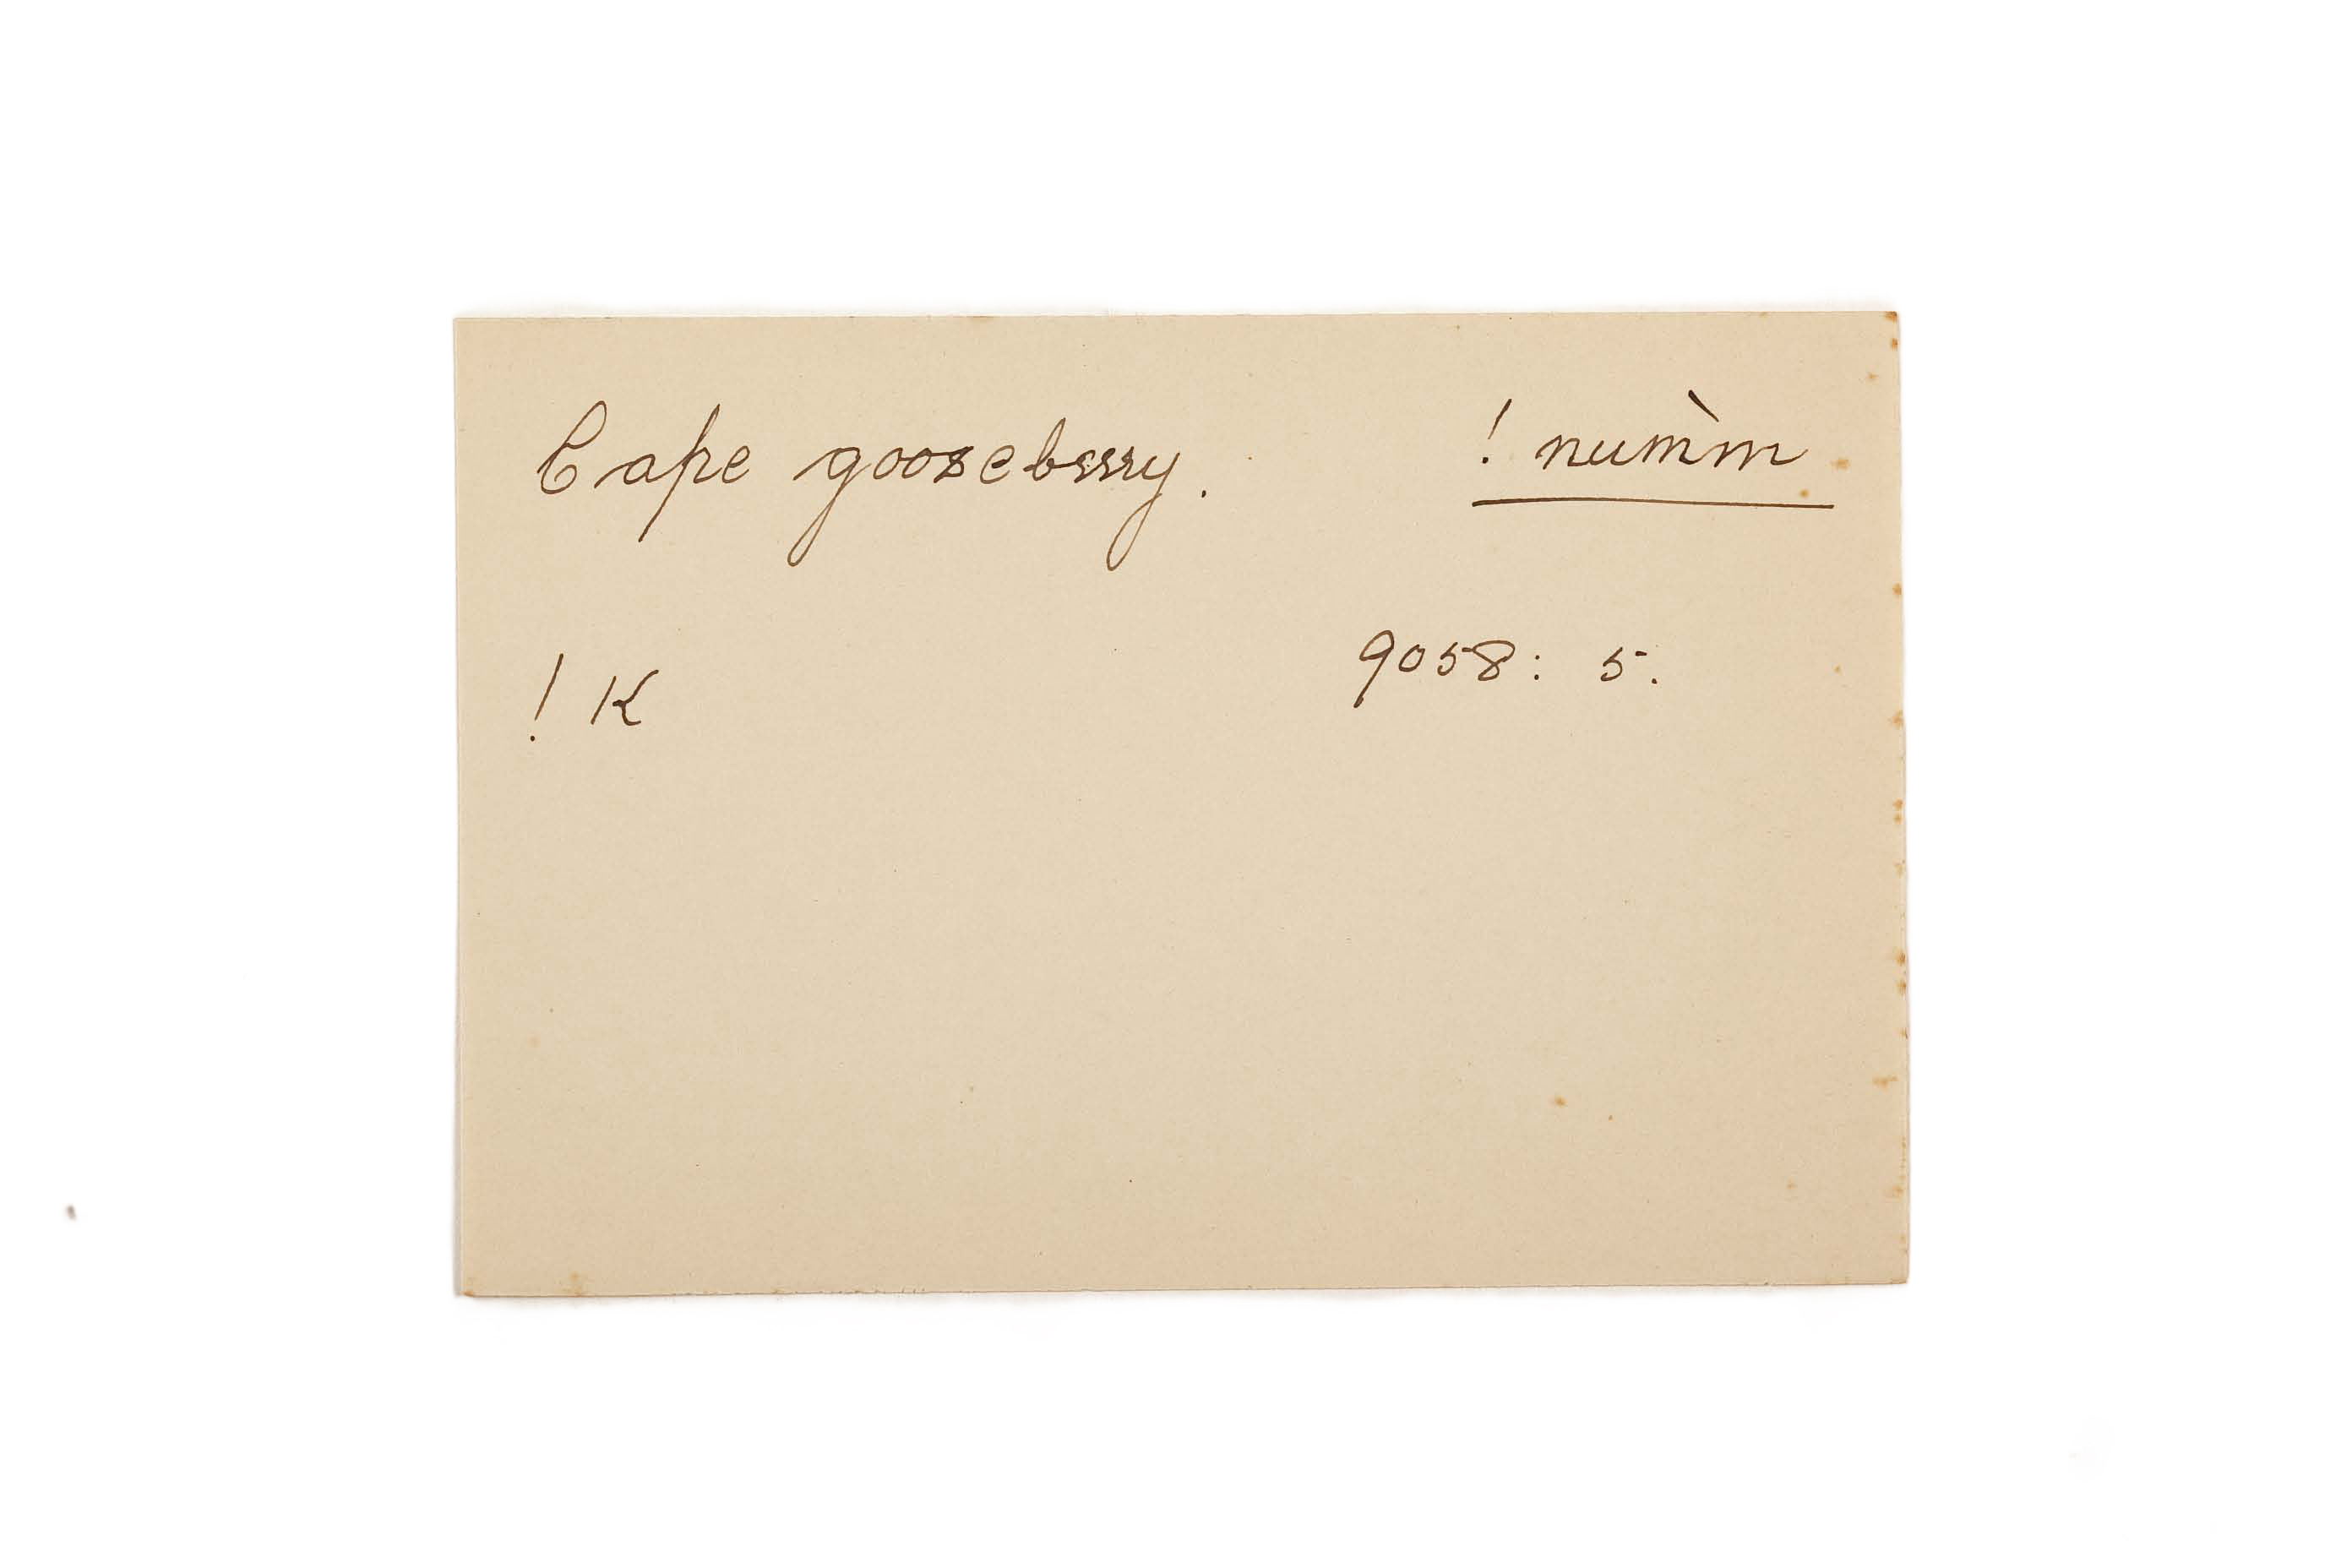 Cape gooseberry. ! num̀m
! K 9058: 5.